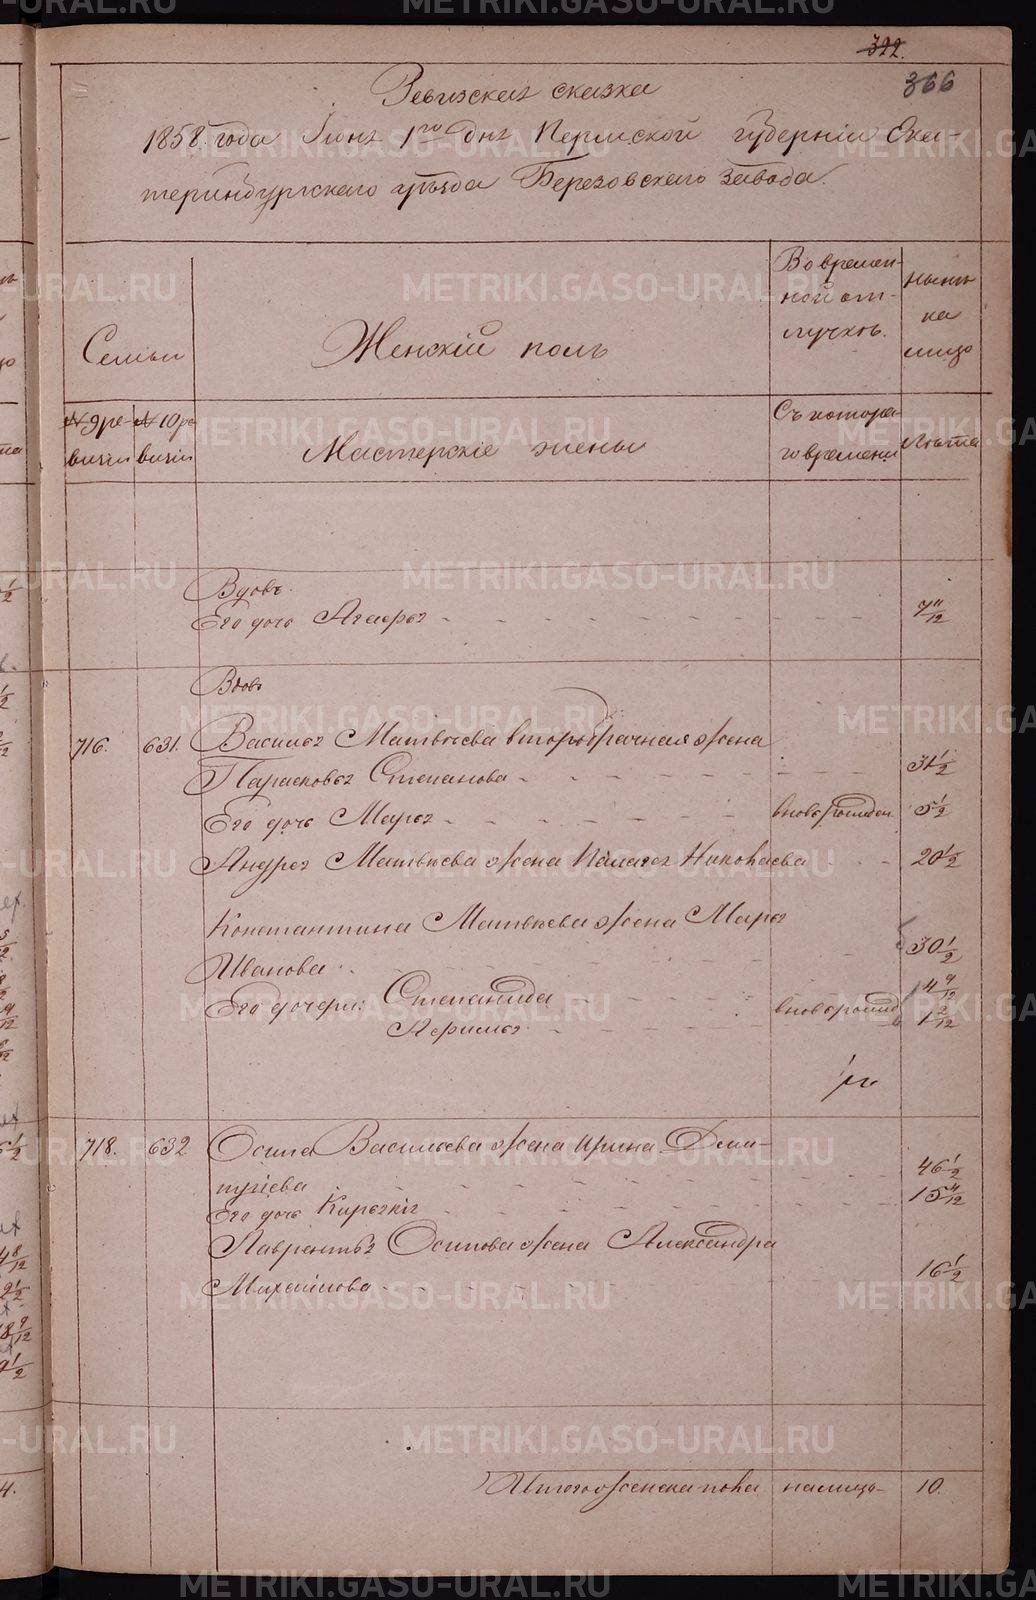 322.
366
Ревизская сказка
1858 года Іюня 1го дня Пермской губерніи Ека-
теринбургскаго уѣзда Березовскаго завода.
Семьи
Женскій полъ
Во времен-
ной от-
лучкѣ.
нынѣ
на
лицо
№ 9 ре-
визіи
№ 10 ре
визіи
Мастерскіе жены
Съ котора-
го времени
Лѣта
Вдовъ.
Его дочь 7 11/12
Вдовъ
716. 631. Василья Матвѣева второбрачная жена
Парасковья Степанова 31 1/2
Его дочь Марья вновьрожден 5 1/2
Андрея Матвѣева жена Палагея Николаева 20 1/2
Константина Матвѣева жена Марья
Иванова 30 1/2
Его дочери: Степанида 4 9/12
вновьрожд 1 2/12
718. 632 Осипа Васильева жена Ирина Деми-
46 1/2
Его дочь 15 4/12
Лаврентья Осипова жена Александра
Михайлова 16 1/2
Итого женска пола налицо 10.
METRIKI.GASO-URAL.RU